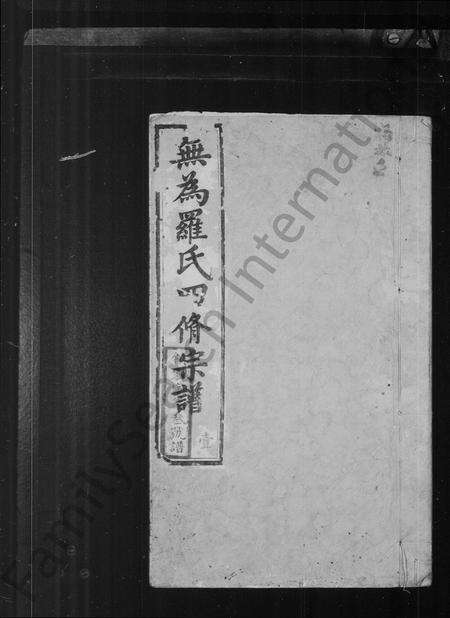 無為羅氏四脩宗譜
壹
FamilySearch International